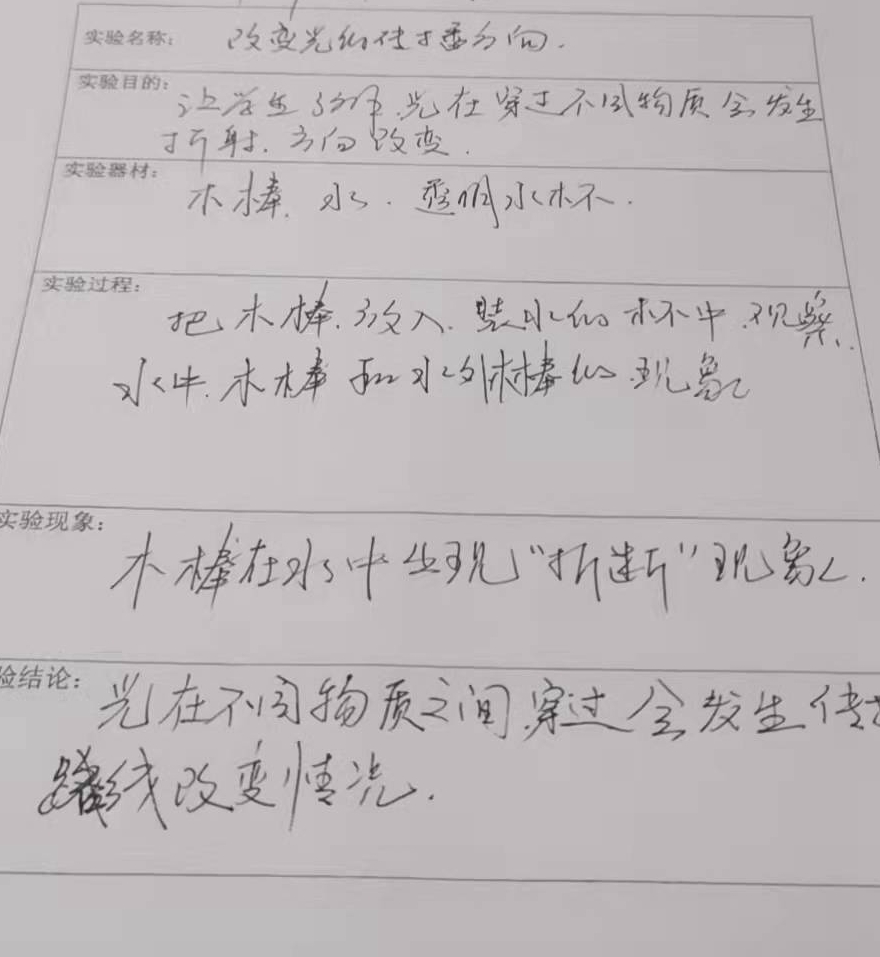 实验名称: 改变光的传播方向.
实验目的: 让学生了解光在穿过不同物质会发生
折射.方向改变.
实验器材: 木棒.水.透明水杯.
实验过程:
把木棒.放入.装水的杯中.观察.
水中.木棒和水外木棒的.现象
实验现象:
木棒在水中出现“折断”现象.
验结论: 光在不同物质之间穿过会发生传
路线改变情况.